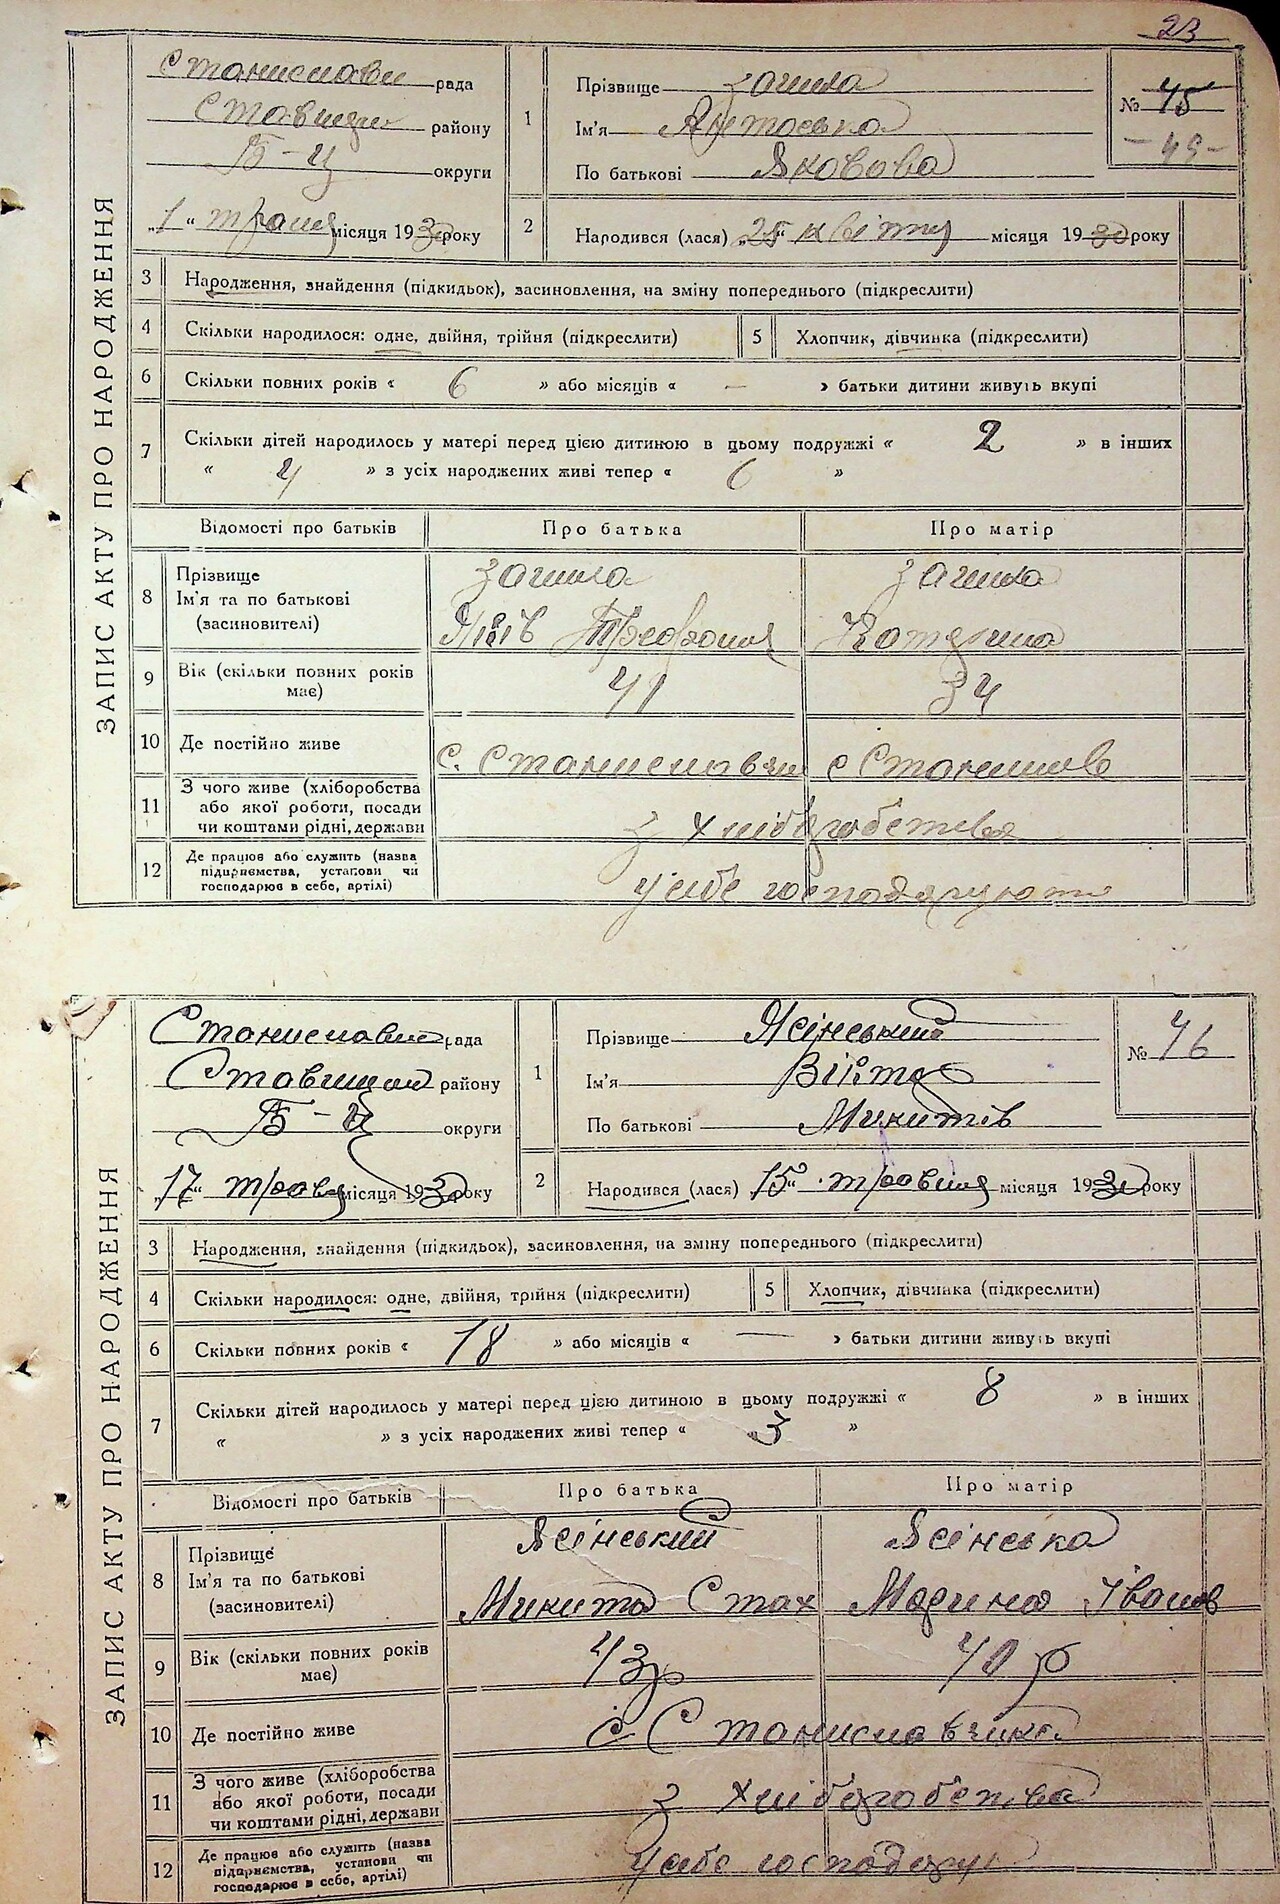 23
ЗАПИС АКТУ ПРО НАРОДЖЕННЯ
Станиславч рада
Ставищан району
Б-Ц округи
„1“ травня місяця 1930 року
1
Прізвище
Ім'я Антоська
По батькові Яковова
№ 45
- 45 -
2
Народився (лася) „25“ квітня місяця 1930 року
3 Народження, знайдення (підкидьок), засиновлення, на зміну попереднього (підкреслити)
4 Скільки народилося: одне, двійня, трійня (підкреслити)
5 Хлопчик, дівчинка (підкреслити)
6 Скільки повних років « 6 » або місяців « — » батьки дитини живуть вкупі
7 Скільки дітей народилось у матері перед цією дитиною в цьому подружжі « 2 » в інших
« 4 » з усіх народжених живі тепер « 6 »
Відомості про батьків Про батька Про матір
8 Прізвище
Ім'я та по батькові Яків Катерина
(засиновителі)
9 Вік (скільки повних років має) 41 34
10 Де постійно живе с. Станиславчи с Станиславч
11 З чого живе (хліборобства або якої роботи, посади чи коштами рідні, держави з хліборобства
12 Де працює або служить (назва підприємства, установи чи господарює в себе, артілі) у себе господарюють
ЗАПИС АКТУ ПРО НАРОДЖЕННЯ
Станиславч рада
Ставищан району
Б-Ц округи
„17“ травня місяця 1930 року
1
Прізвище Ясінський
Ім'я Віктор
По батькові Микитів
№ 46
2
Народився (лася) „15“ травня місяця 1930 року
3 Народження, знайдення (підкидьок), засиновлення, на зміну попереднього (підкреслити)
4 Скільки народилося: одне, двійня, трійня (підкреслити)
5 Хлопчик, дівчинка (підкреслити)
6 Скільки повних років « 18 » або місяців « — » батьки дитини живуть вкупі
7 Скільки дітей народилось у матері перед цією дитиною в цьому подружжі « 8 » в інших
« » з усіх народжених живі тепер « 3 »
Відомості про батьків Про батька Про матір
8 Прізвище Ясінський Ясінська
Ім'я та по батькові Микита Стах Марина Іванов
(засиновителі)
9 Вік (скільки повних років має) 43р 40 р
10 Де постійно живе с Станиславчик
11 З чого живе (хліборобства або якої роботи, посади чи коштами рідні, держави з хліборобства
12 Де працює або служить (назва підприємства, установи чи господарює в себе, артілі) у себе господарую